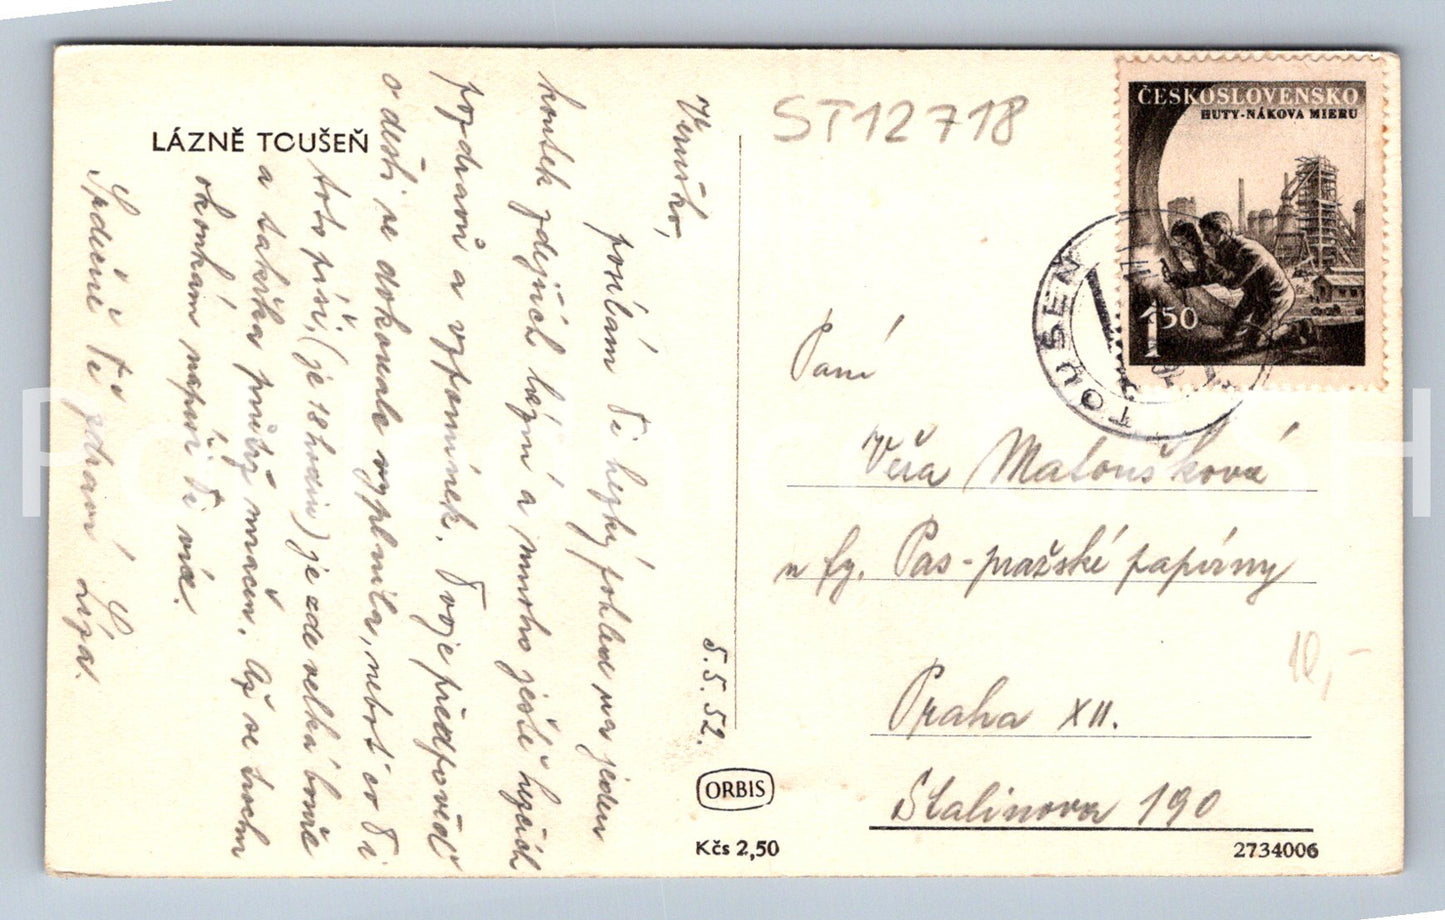 LÁZNĚ TOUŠEŇ
5.5.52.
Věruško,
posílám Ti hezký pohled na jeden
koutek zdejších lázní a mnoho ještě hezčích
pozdravů a vzpomínek. Tvoje předpověď
o dešti se dokonale vyplnila, neboť co Ti
toto píši, (je 18 hodin) je zde velká bouře
a takřka průtrž mračen. Až se trochu
okoukám napíši Ti více.
Srdečně Tě zdraví
ORBIS
Kčs 2,50
ST12718
ČESKOSLOVENSKO
HUTY-NÁKOVA MIERU
1 50
TOUŠEŇ
Paní
Věra Matoušková
u fy. Pas-pražské papírny
Praha XII.
Stalinova 190
10,-
2734006